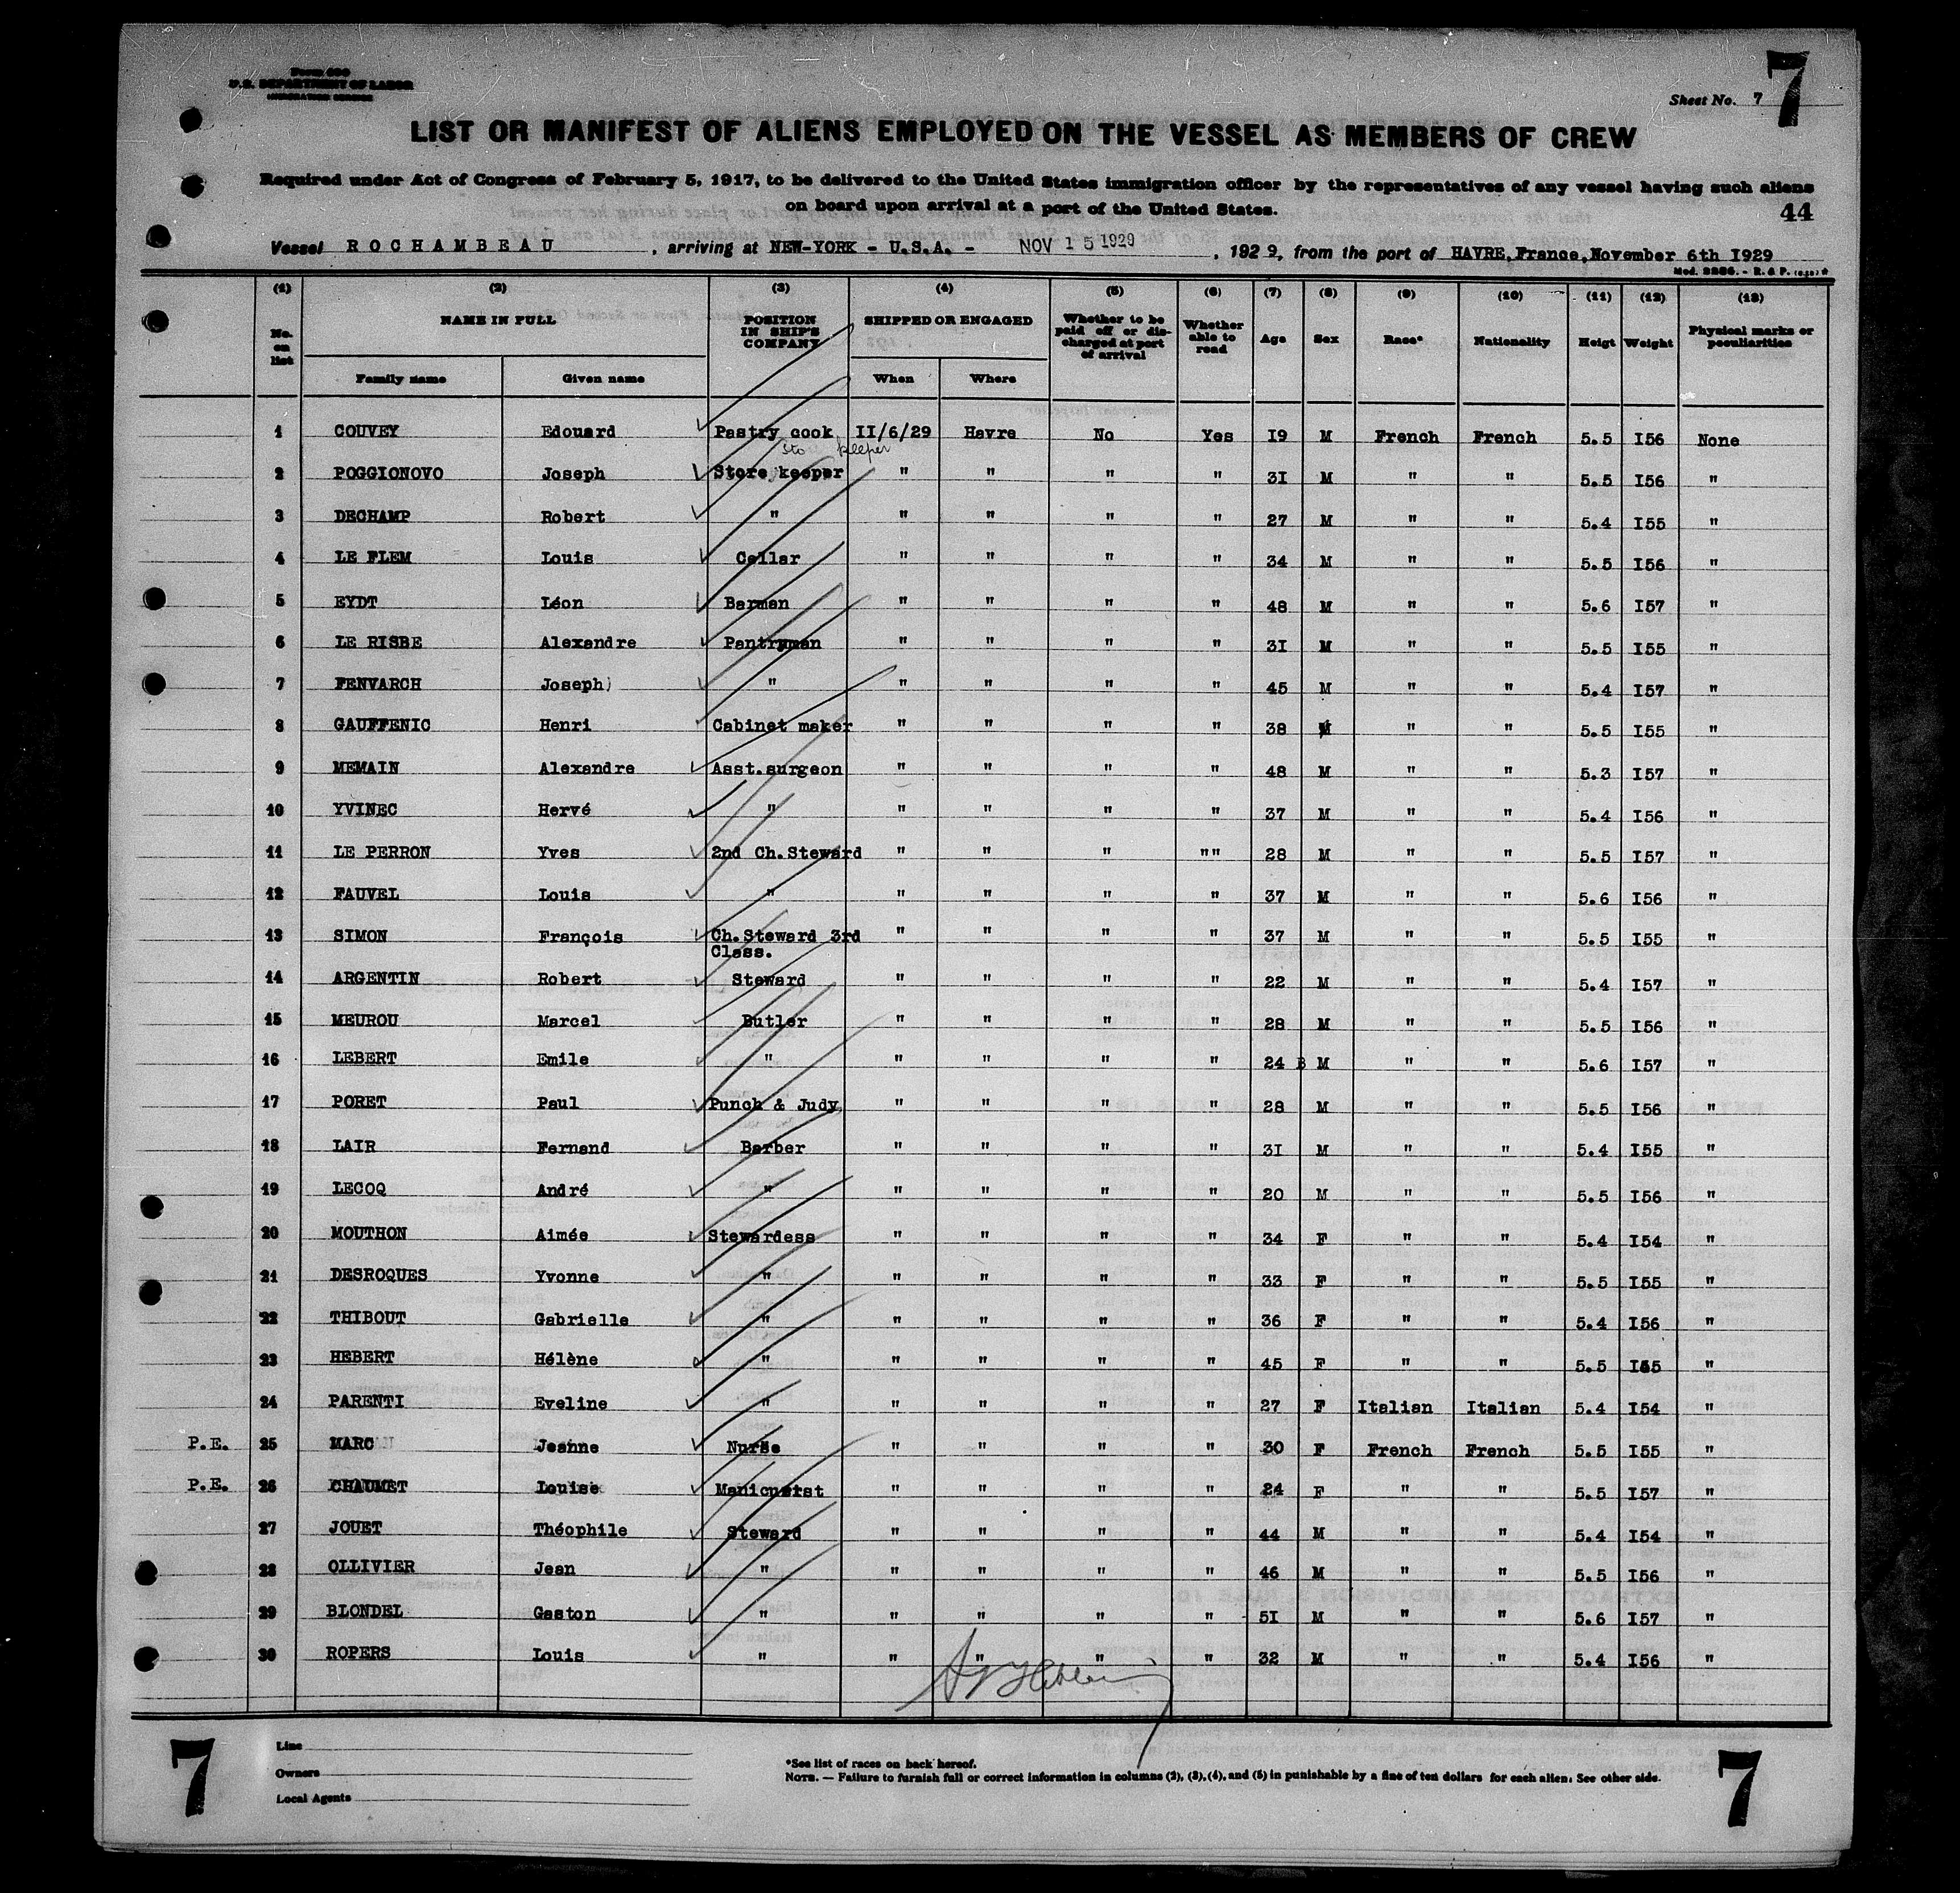 7
Form 680
U.S. DEPARTMENT OF LABOR
IMMIGRATION SERVICE
Sheet No. 7
LIST OR MANIFEST OF ALIENS EMPLOYED ON THE VESSEL AS MEMBERS OF CREW
Required under Act of Congress of February 5, 1917, to be delivered to the United States immigration officer by the representatives of any vessel having such aliens
on board upon arrival at a port of the United States.
44
Vessel ROCHAMBEAU , arriving at NEW-YORK - U.S.A. - NOV 15 1929 , 1929, from the port of HAVRE, France, November 6th I929
Mod. 2286. - R. & P. *
(1) (2) (3) (4) (5) (6) (7) (8) (9) (10) (11) (12) (13)
No. on list NAME IN FULL POSITION IN SHIP'S COMPANY SHIPPED OR ENGAGED Whether to be paid off or discharged at port of arrival Whether able to read Age Sex Race* Nationality Heigt Weight Physical marks or peculiarities
Family name Given name When Where
1 COUVEY Edouard Pastry cook II/6/29 Havre No Yes I9 M French French 5.5 I56 None
Sto keeper
2 POGGIONOVO Joseph Store keeper " " " " 3I M " " 5.5 I56 "
3 DECHAMP Robert " " " " " 27 M " " 5.4 I55 "
4 LE FLEM Louis Cellar " " " " 34 M " " 5.5 I56 "
5 EYDT Léon Barman " " " " 48 M " " 5.6 I57 "
6 LE RISBE Alexandre Pantryman " " " " 3I M " " 5.5 I55 "
7 FENVARCH Joseph) " " " " " 45 M " " 5.4 I57 "
8 GAUFFENIC Henri Cabinet maker " " " " 38 M " " 5.5 I55 "
9 MEMAIN Alexandre Asst.surgeon " " " " 48 M " " 5.3 I57 "
10 YVINEC Hervé " " " " " 37 M " " 5.4 I56 "
11 LE PERRON Yves 2nd Ch.Steward " " " "" 28 M " " 5.5 I57 "
12 FAUVEL Louis " " " " " 37 M " " 5.6 I56 "
13 SIMON François Ch.Steward 3rd Class. " " " " 37 M " " 5.5 I55 "
14 ARGENTIN Robert Steward " " " " 22 M " " 5.4 I57 "
15 MEUROU Marcel Butler " " " " 28 M " " 5.5 I56 "
16 LEBERT Emile " " " " " 24 B M " " 5.6 I57 "
17 PORET Paul Punch & Judy " " " " 28 M " " 5.5 I56 "
18 LAIR Fernand Barber " " " " 3I M " " 5.4 I55 "
19 LECOQ André " " " " " 20 M " " 5.5 I56 "
20 MOUTHON Aimée Stewardess " " " " 34 F " " 5.4 I54 "
21 DESROQUES Yvonne " " " " " 33 F " " 5.5 I55 "
22 THIBOUT Gabrielle " " " " " 36 F " " 5.4 I56 "
23 HEBERT Hélène " " " " " 45 F " " 5.5 I55 "
24 PARENTI Eveline " " " " " 27 F Italian Italian 5.4 I54 "
P.E. 25 MARC Jeanne Nurse " " " " 30 F French French 5.5 I55 "
P.E. 26 CHAUMET Louise Manicurist " " " " 24 F " " 5.5 I57 "
27 JOUET Théophile Steward " " " " 44 M " " 5.4 I54 "
28 OLLIVIER Jean " " " " " 46 M " " 5.5 I56 "
29 BLONDEL Gaston " " " " " 5I M " " 5.6 I57 "
30 ROPERS Louis " " " " " 32 M " " 5.4 I56 "
7
Line
Owners
Local Agents
*See list of races on back hereof.
NOTE. — Failure to furnish full or correct information in columns (2), (3), (4), and (5) in punishable by a fine of ten dollars for each alien. See other side.
7